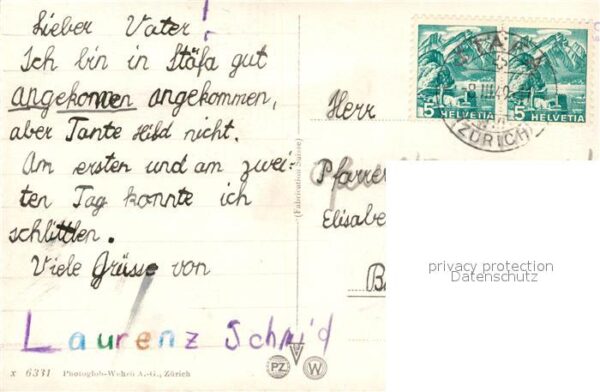 Lieber Vater!
Ich bin in Stäfa gut
angekommen angekommen,
aber Tante Hild nicht.
Am ersten und am zwei-
ten Tag konnte ich
schlitteln.
Viele Grüsse von
Laurenz Schmid
x 6331 Photoglob-Wehrli A.-G., Zürich
(Fabrication Suisse)
PZ W
STÄFA
8.III.42
(ZÜRICH)
5 HELVETIA 5 HELVETIA
Herr
Pfarrer
Elisabe
privacy protection
Datenschutz